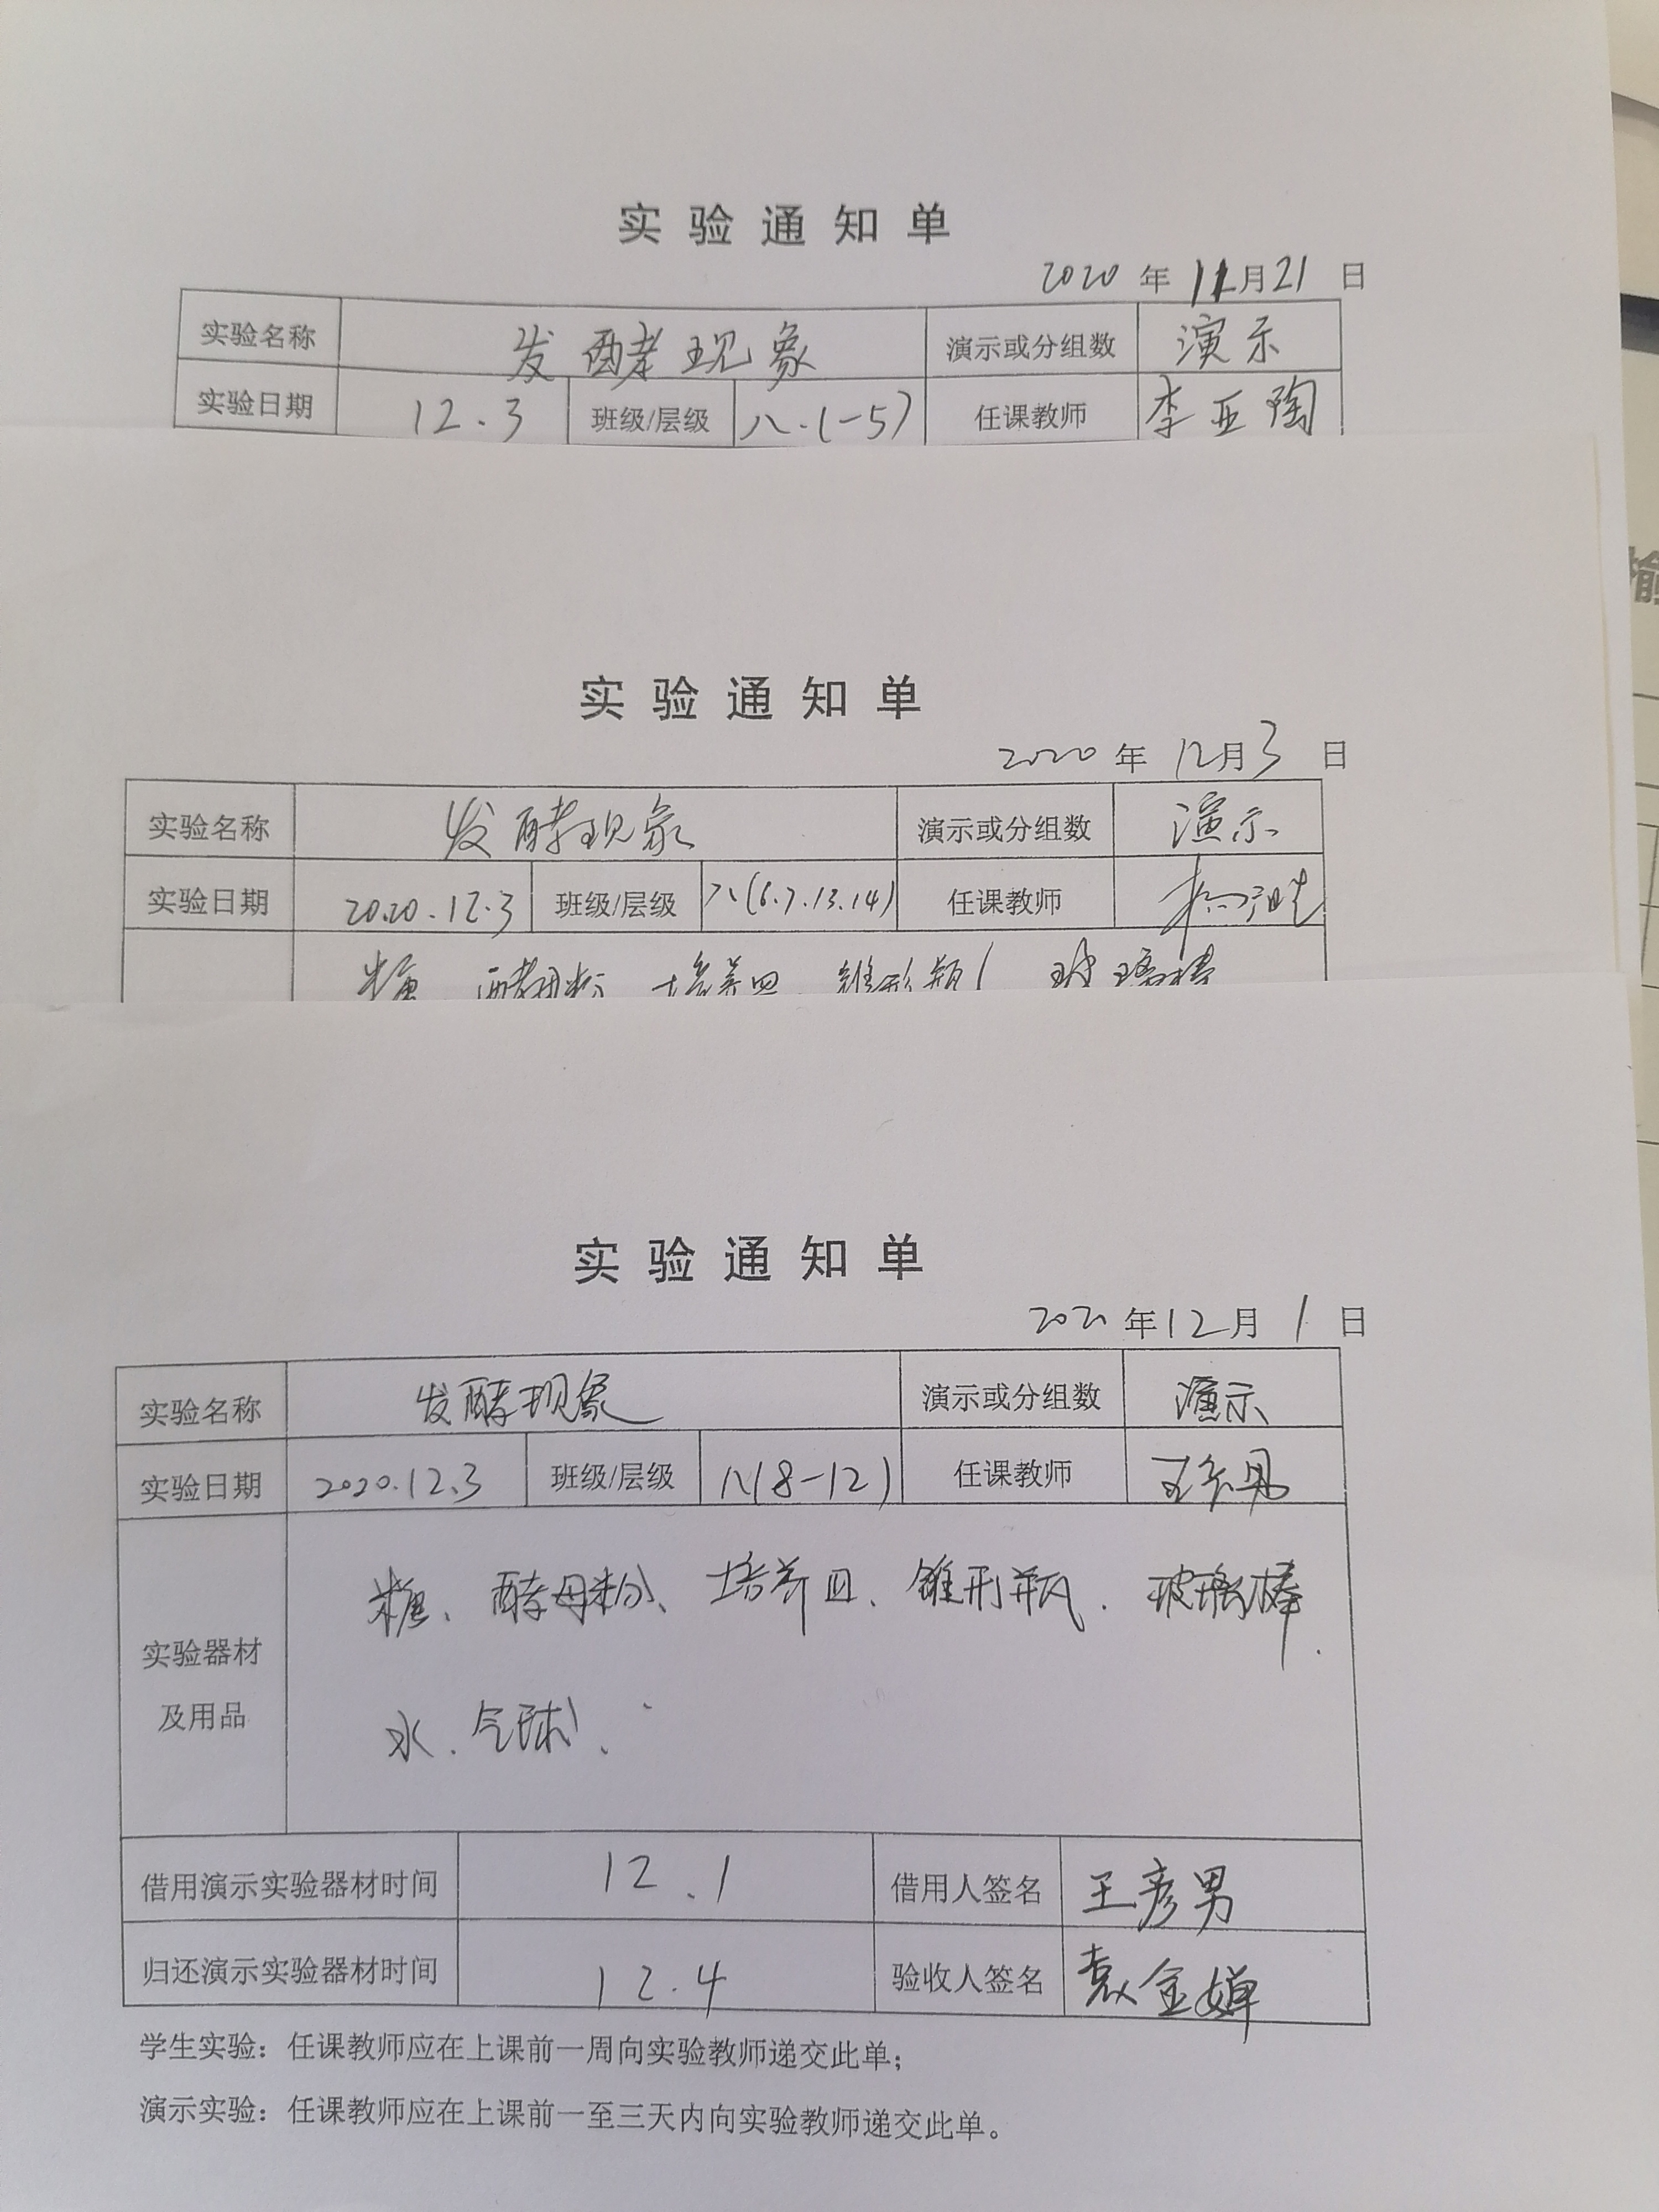 实验通知单
2020 年 11月21 日
实验名称 发酵现象 演示或分组数 演示
实验日期 12.3 班级/层级 八.(-5) 任课教师 李亚陶
实验通知单
2020 年 12月3 日
实验名称 发酵现象 演示或分组数 演示
实验日期 2020.12.3 班级/层级 八(6.7.13.14) 任课教师
糖 酵母粉 培养皿 锥形瓶 玻璃棒
实验通知单
2020 年12月 1 日
实验名称 发酵现象 演示或分组数 演示
实验日期 2020.12.3 班级/层级 八(8-12) 任课教师 王彦男
糖、酵母粉、培养皿、锥形瓶、玻璃棒、
实验器材
及用品
水、气球、
借用演示实验器材时间 12.1 借用人签名 王彦男
归还演示实验器材时间 12.4 验收人签名 袁金婵
学生实验：任课教师应在上课前一周向实验教师递交此单；
演示实验：任课教师应在上课前一至三天内向实验教师递交此单。